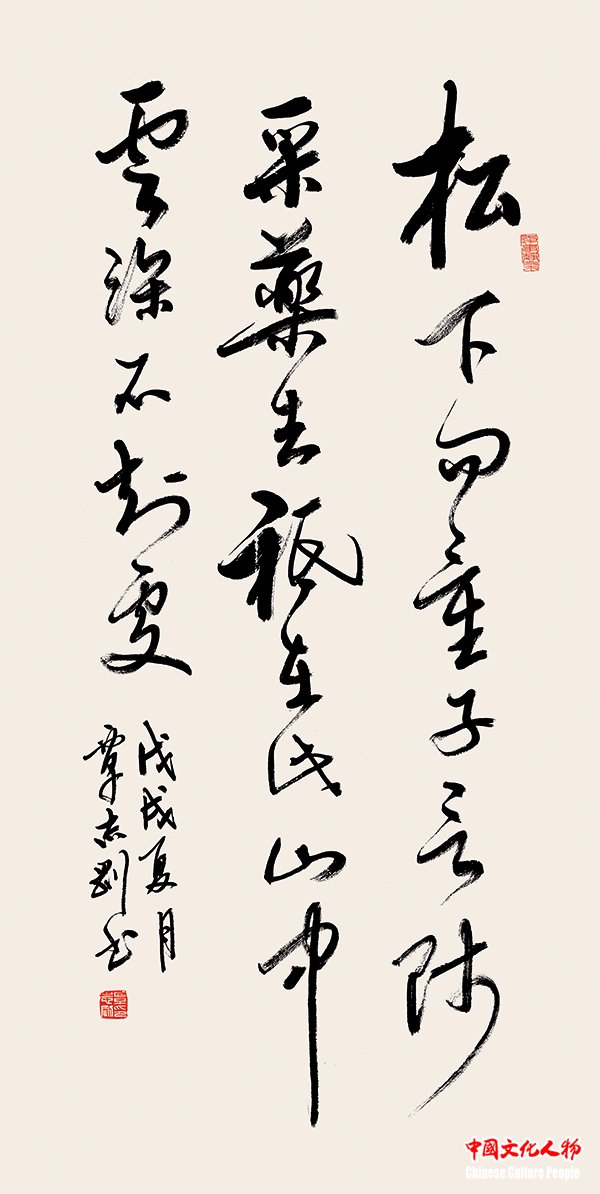 松下问童子言师
采藥去祇在此山中
雲深不知处
戊戌夏月
覃志刚书
中國文化人物
Chinese Culture People